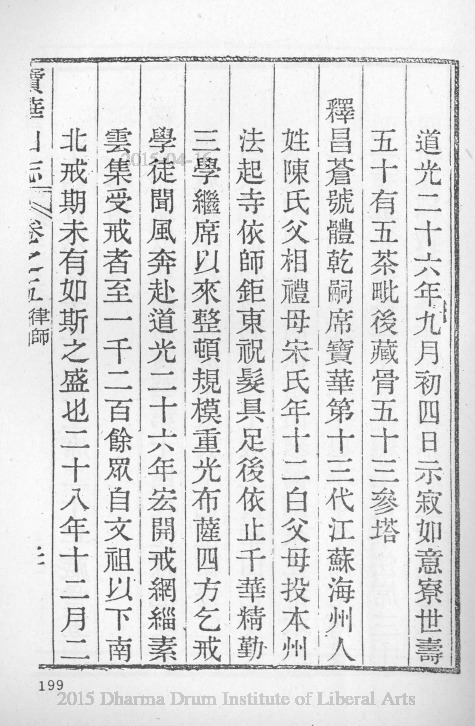 道光二十六年九月初四日示寂如意寮世壽
五十有五茶毗後藏骨五十三參塔
釋昌蒼號體乾嗣席寶華第十三代江蘇海州人
姓陳氏父相禮母宋氏年十二白父母投本州
法起寺依師鉅東祝髮具足後依止千華精勤
三學繼席以來整頓規模重光布薩四方乞戒
學徒聞風奔赴道光二十六年宏開戒網緇素
雲集受戒者至一千二百餘眾自文祖以下南
北戒期未有如斯之盛也二十八年十二月二
寶華山志 卷之五 律師
199
2015 Dharma Drum Institute of Liberal Arts